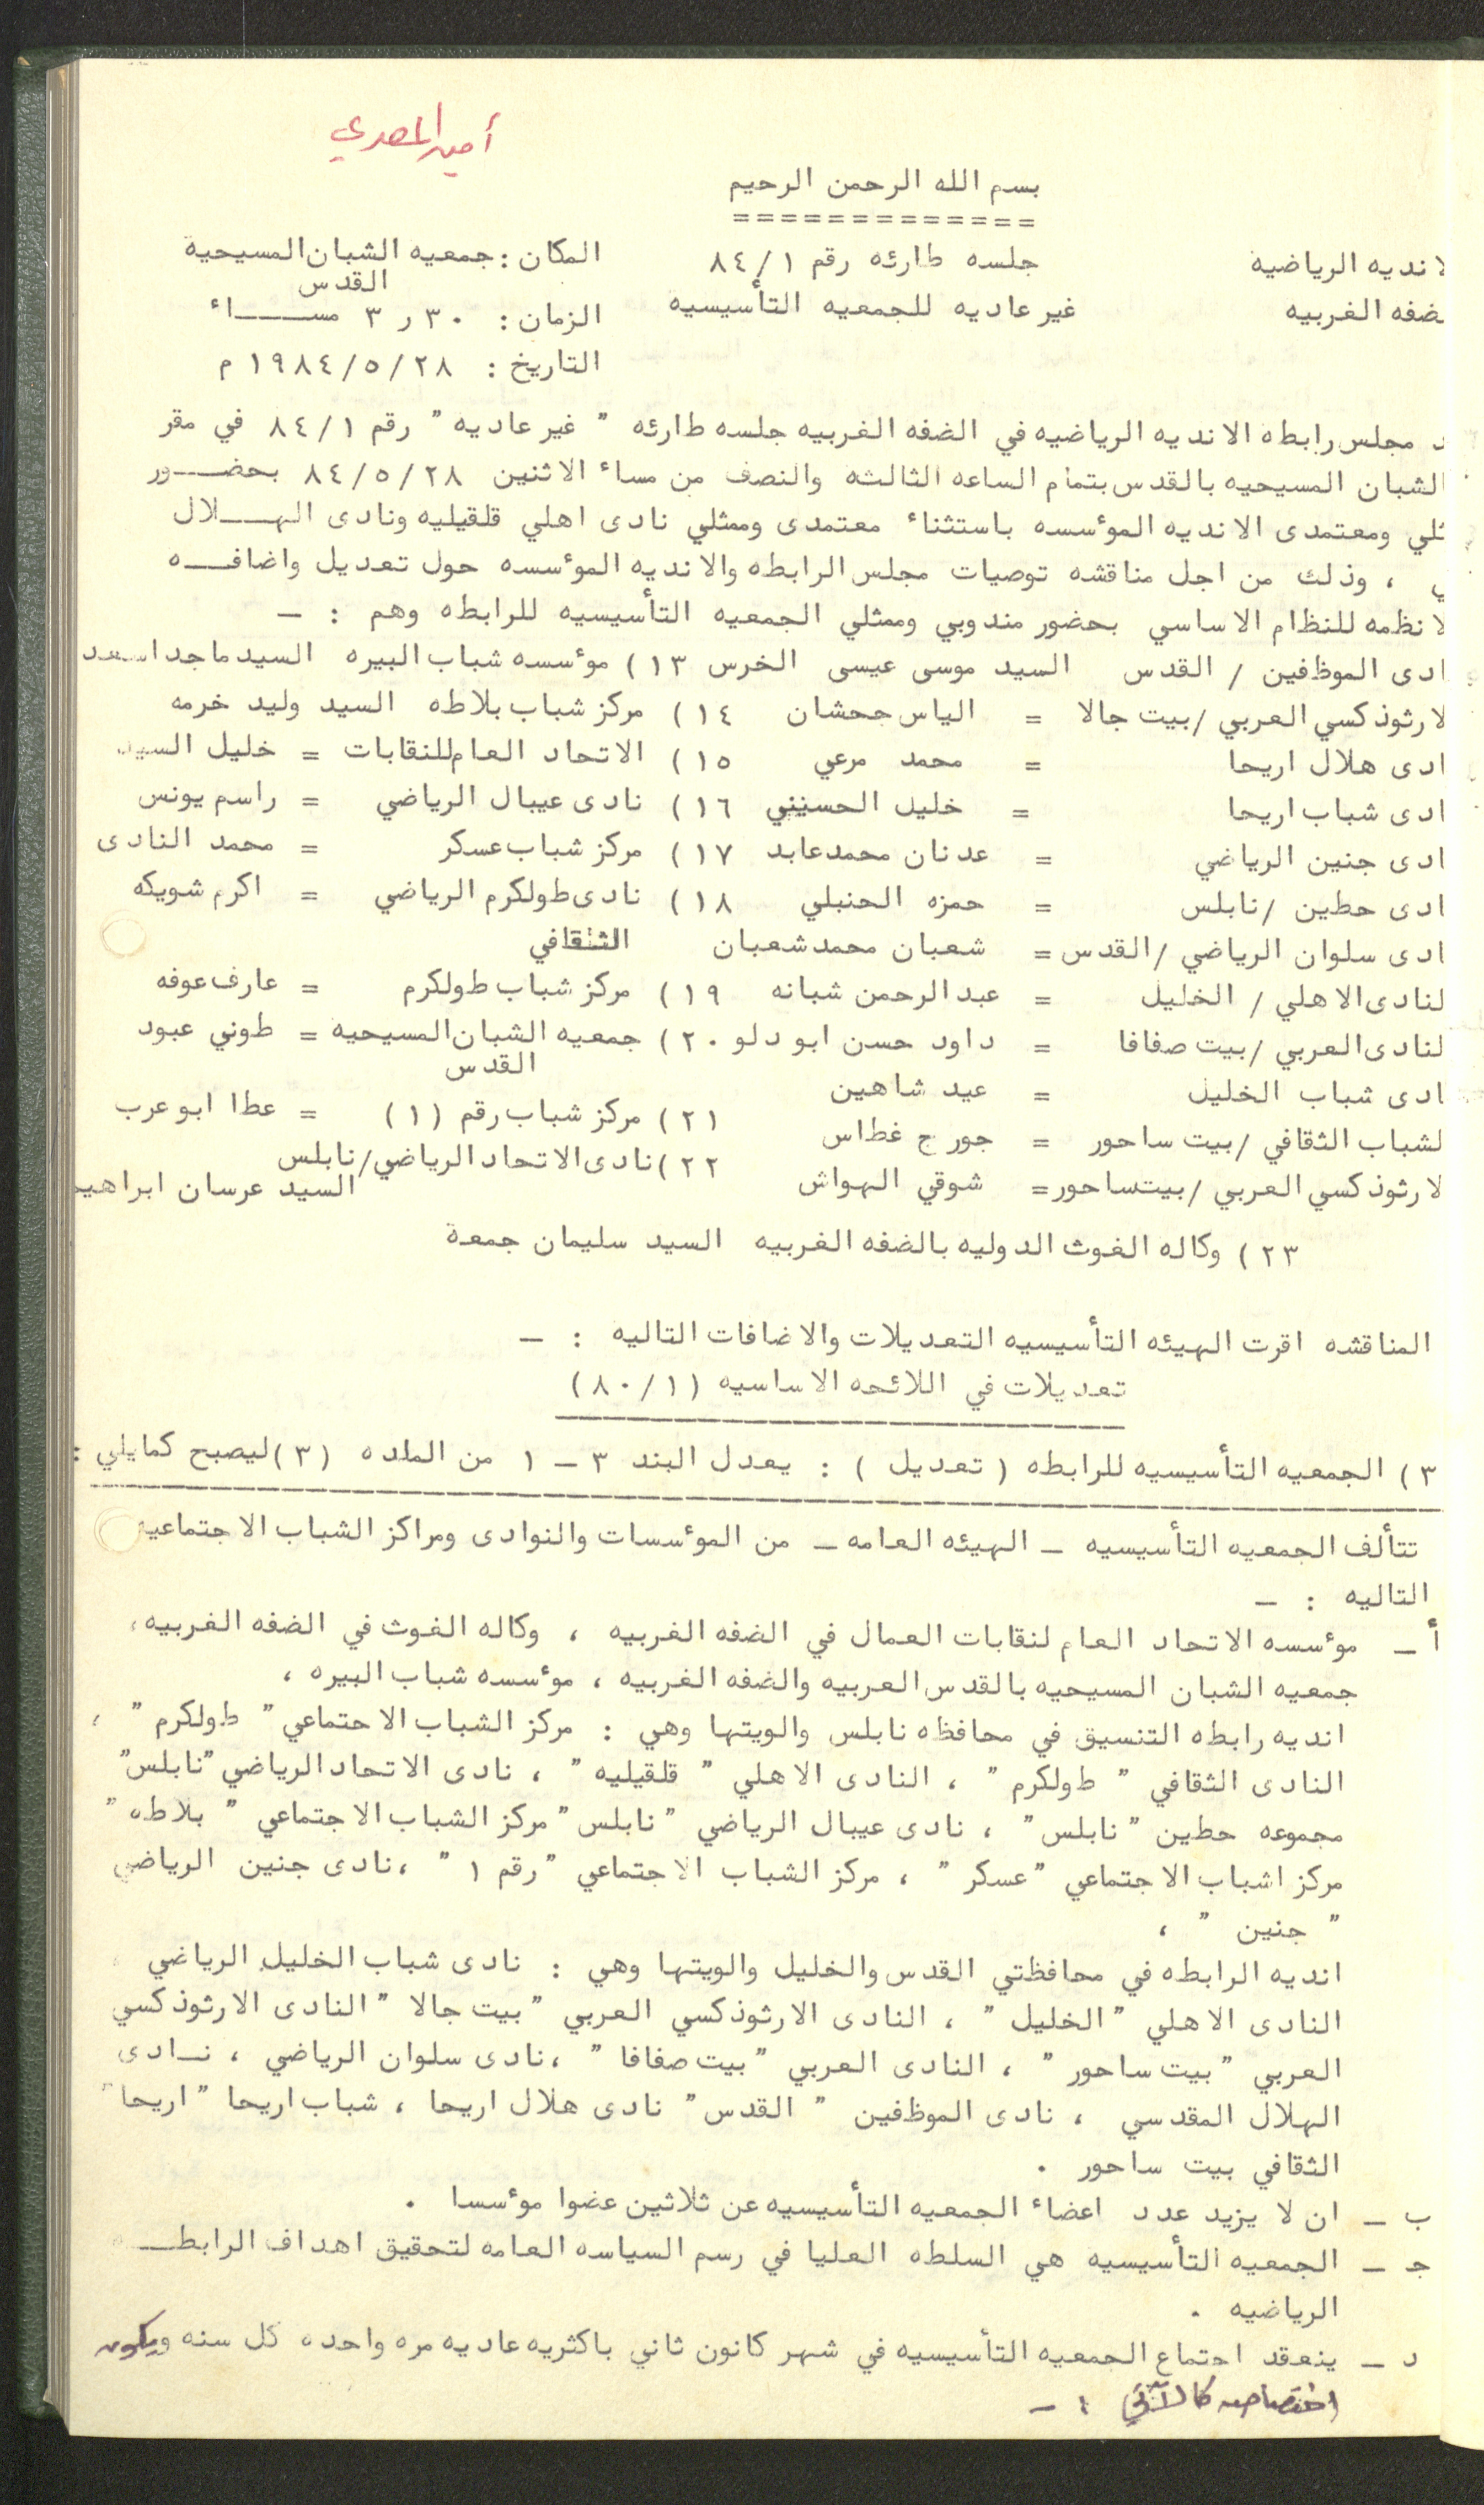 أمين المصري
بسم الله الرحمن الرحيم
=============
لانديه الرياضيه
جلسه طارئه رقم ٨٤/١
المكان : جمعيه الشبان المسيحية
القدس
ضفه الغربيه
غير عاديه للجمعيه التأسيسيه
الزمان : ٣٠ ر ٣ مســـاء
التاريخ : ١٩٨٤/٥/٢٨ م
د مجلس رابطه الانديه الرياضيه في الضفه الغربيه جلسه طارئه " غير عاديه " رقم ٨٤/١ في مقر
الشبان المسيحيه بالقدس بتمام الساعه الثالثه والنصف من مساء الاثنين ٨٤/٥/٢٨ بحضــور
ثلي ومعتمدى الانديه المؤسسه باستثناء معتمدى وممثلي نادى اهلي قلقيليه ونادى الهــلال
ي ، وذلك من اجل مناقشه توصيات مجلس الرابطه والانديه المؤسسه حول تعديل واضافــه
لانظمه للنظام الاساسي بحضور مندوبي وممثلي الجمعيه التأسيسيه للرابطه وهم : ـ
ادى الموظفين / القدس السيد موسى عيسى الخرس ١٣ ) مؤسسه شباب البيره السيد ماجد اسعد
لارثوذكسي العربي / بيت جالا = الياس جحشان ١٤ ) مركز شباب بلاطه السيد وليد خرمه
ادى هلال اريحا = محمد مرعي ١٥ ) الاتحاد العام للنقابات = خليل السيد
ادى شباب اريحا = خليل الحسيني ١٦ ) نادى عيبال الرياضي = راسم يونس
ادى جنين الرياضي = عدنان محمد عابد ١٧ ) مركز شباب عسكر = محمد النادى
ادى حطين / نابلس = حمزه الحنبلي ١٨ ) نادى طولكرم الرياضي = اكرم شويكه
ادى سلوان الرياضي / القدس = شعبان محمد شعبان الثقافي
لنادى الاهلي / الخليل = عبد الرحمن شبانه ١٩ ) مركز شباب طولكرم = عارف عوفه
لنادى العربي / بيت صفافا = داود حسن ابو دلو ٢٠ ) جمعيه الشبان المسيحيه = طوني عبود
القدس
ادى شباب الخليل = عيد شاهين
٢١ ) مركز شباب رقم ( ١ ) = عطا ابو عرب
لشباب الثقافي / بيت ساحور = جورج غطاس
٢٢ ) نادى الاتحاد الرياضي / نابلس
لارثوذكسي العربي / بيتساحور = شوقي الهواش
السيد عرسان ابراهيم
٢٣ ) وكاله الغوث الدوليه بالضفه الغربيه السيد سليمان جمعة
المناقشه اقرت الهيئه التأسيسيه التعديلات والاضافات التاليه : ـ
تعديلات في اللائحه الاساسيه ( ٨٠/١ )
٣ ) الجمعيه التأسيسيه للرابطه ( تعديل ) : يعدل البند ٣ ـ ١ من الماده ( ٣ ) ليصبح كمايلي :
تتألف الجمعيه التأسيسيه ـ الهيئه العامه ـ من المؤسسات والنوادى ومراكز الشباب الاجتماعيه
التاليه : ـ
أ ـ مؤسسه الاتحاد العام لنقابات العمال في الضفه الغربيه ، وكاله الغوث في الضفه الغربيه ،
جمعيه الشبان المسيحيه بالقدس العربيه والضفه الغربيه ، مؤسسه شباب البيره ،
انديه رابطه التنسيق في محافظه نابلس والويتها وهي : مركز الشباب الاجتماعي " طولكرم " ،
النادى الثقافي " طولكرم " ، النادى الاهلي " قلقيليه " ، نادى الاتحاد الرياضي " نابلس "
مجموعه حطين " نابلس " ، نادى عيبال الرياضي " نابلس " مركز الشباب الاجتماعي " بلاطه "
مركز اشباب الاجتماعي " عسكر " ، مركز الشباب الاجتماعي " رقم ١ " ، نادى جنين الرياضي
" جنين " ،
انديه الرابطه في محافظتي القدس والخليل والويتها وهي : نادى شباب الخليل الرياضي
النادى الاهلي " الخليل " ، النادى الارثوذكسي العربي " بيت جالا " النادى الارثوذكسي
العربي " بيت ساحور " ، النادى العربي " بيت صفافا " ، نادى سلوان الرياضي ، نـادى
الهلال المقدسي ، نادى الموظفين " القدس " نادى هلال اريحا ، شباب اريحا " اريحا "
الثقافي بيت ساحور .
ب ـ ان لا يزيد عدد اعضاء الجمعيه التأسيسيه عن ثلاثين عضوا مؤسسا .
جـ ـ الجمعيه التأسيسيه هي السلطه العليا في رسم السياسه العامه لتحقيق اهداف الرابطــه
الرياضيه .
د ـ ينعقد اجتماع الجمعيه التأسيسيه في شهر كانون ثاني باكثريه عاديه مره واحده كل سنه ويكون
اختصاصه كالآتي : ـ